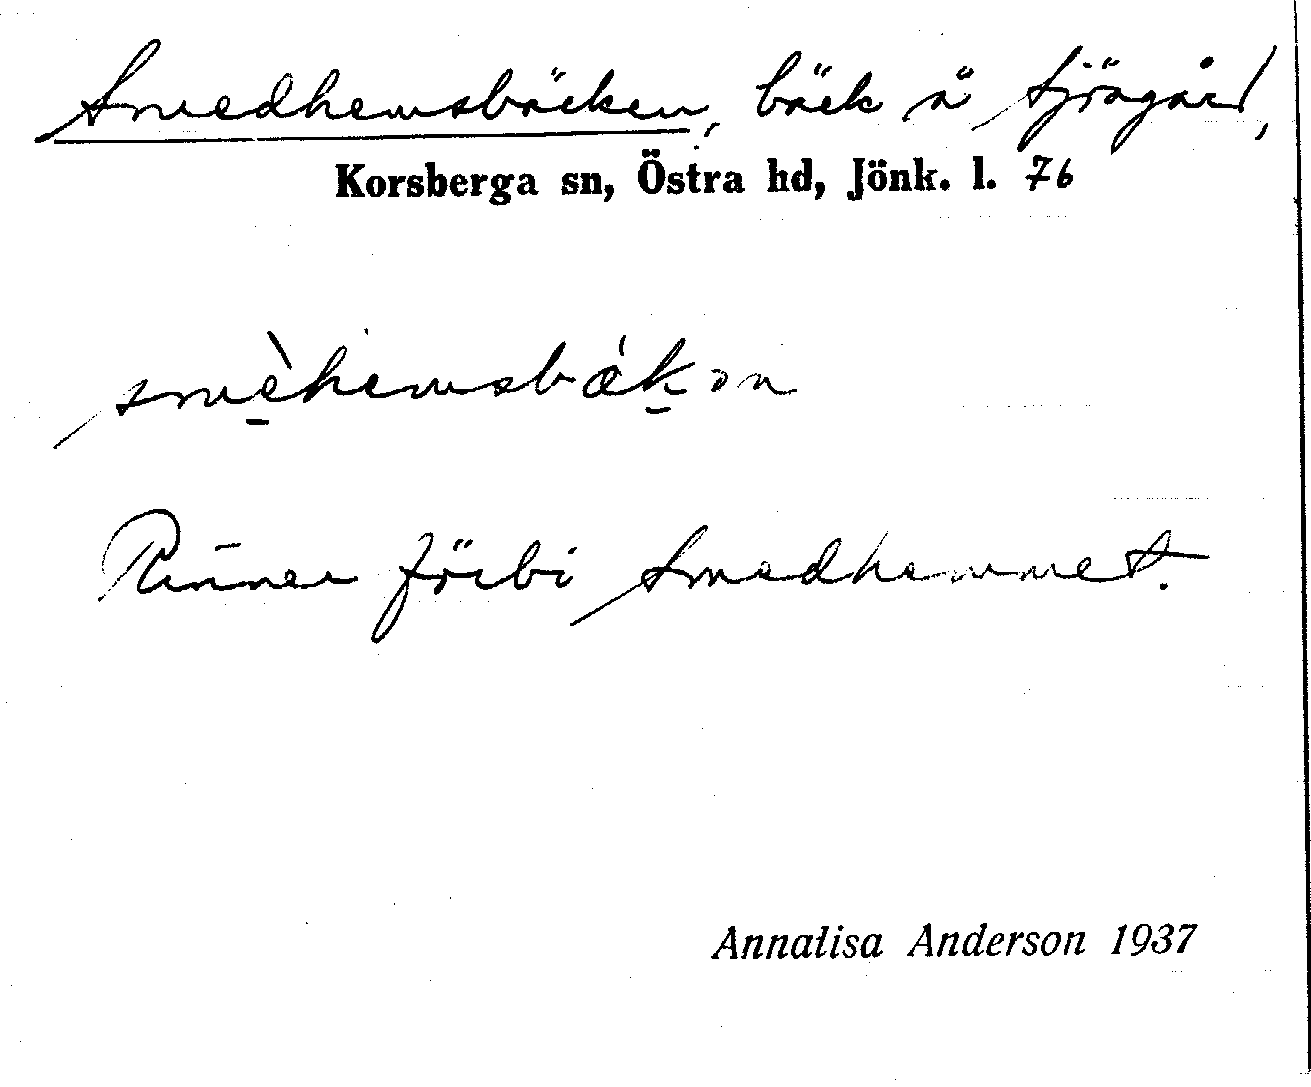 Smedhemsbäcken, bäck å Sjögård,
Korsberga sn, Östra hd, Jönk. l. 76
smèhemsbǽkən
Rinner förbi Smedhemmet.
Annalisa Anderson 1937